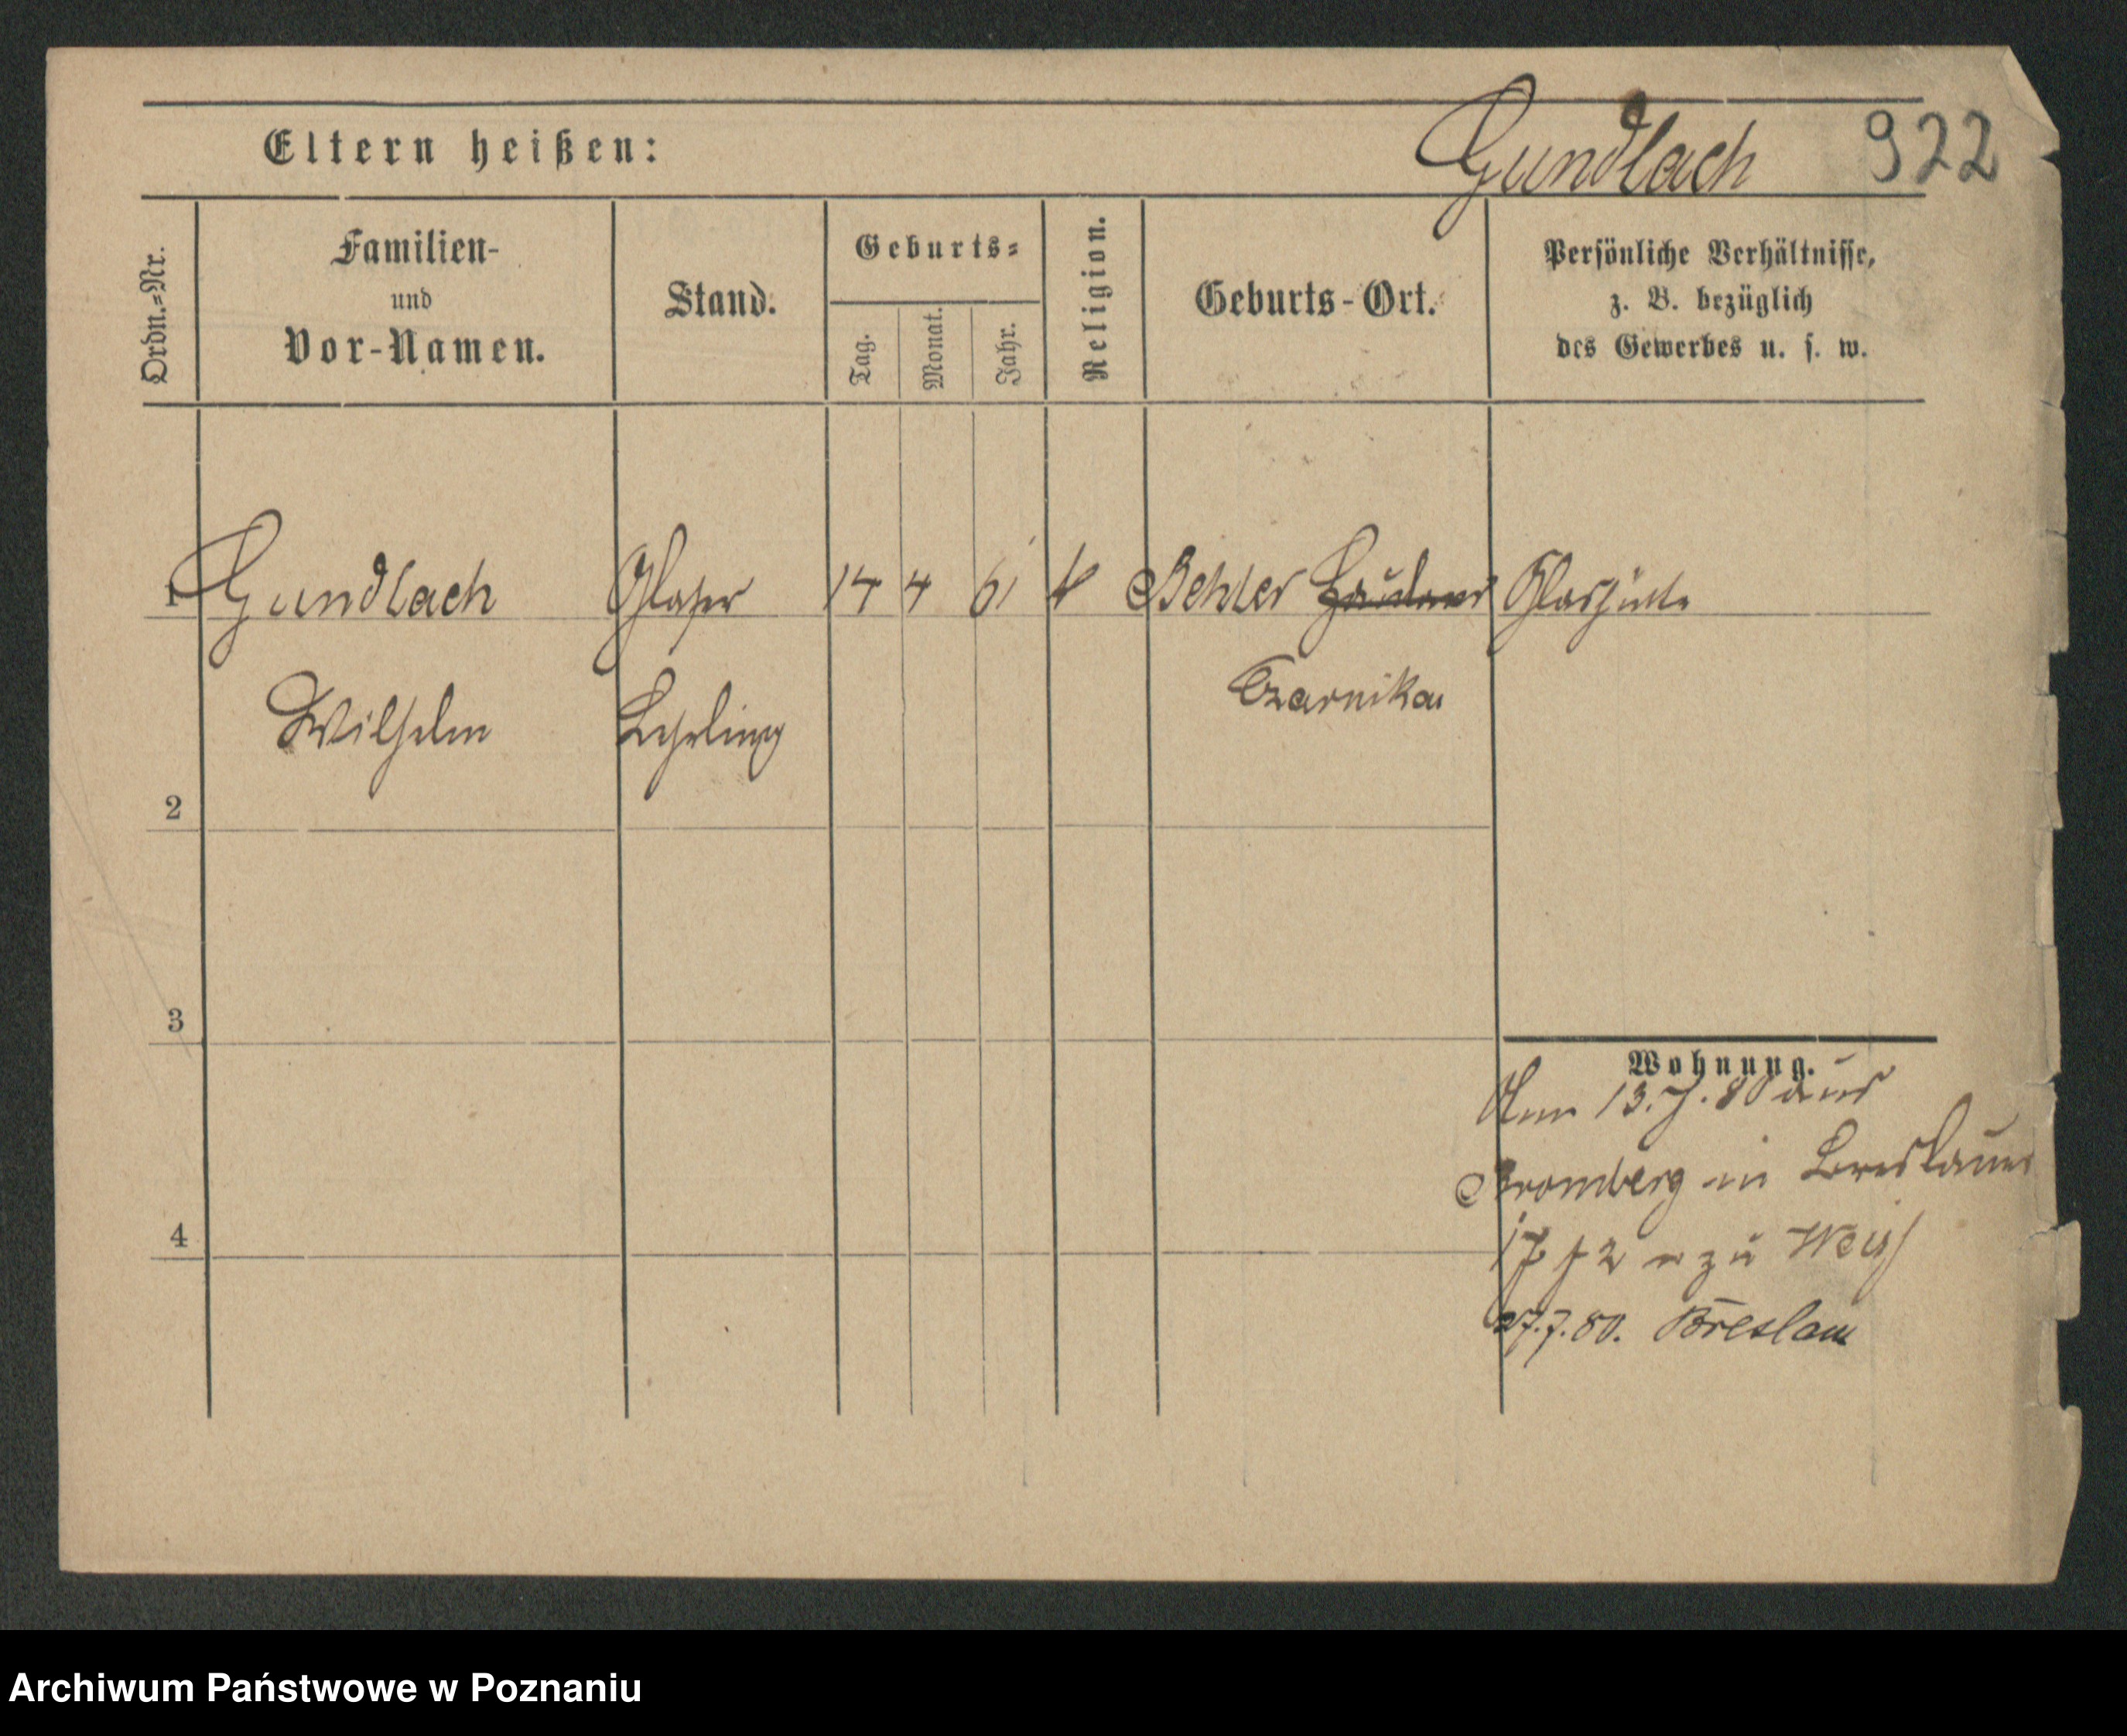 Eltern heißen:
Gundlach 922
Ordn.=Nr.
Familien-
und
Vor-Namen.
Stand.
Geburts=
Tag.
Monat.
Jahr.
Religion.
Geburts-Ort.
Persönliche Verhältnisse,
z. B. bezüglich
des Gewerbes u. s. w.
1 Gundlach Glaser 14 4 61 Behler
Czarnikau
Wilhelm Lehrling
2
3
4
Wohnung.
13.7.80 aus
Bromberg in Breslauer
17 zu
27.7.80. Breslau
Archiwum Państwowe w Poznaniu